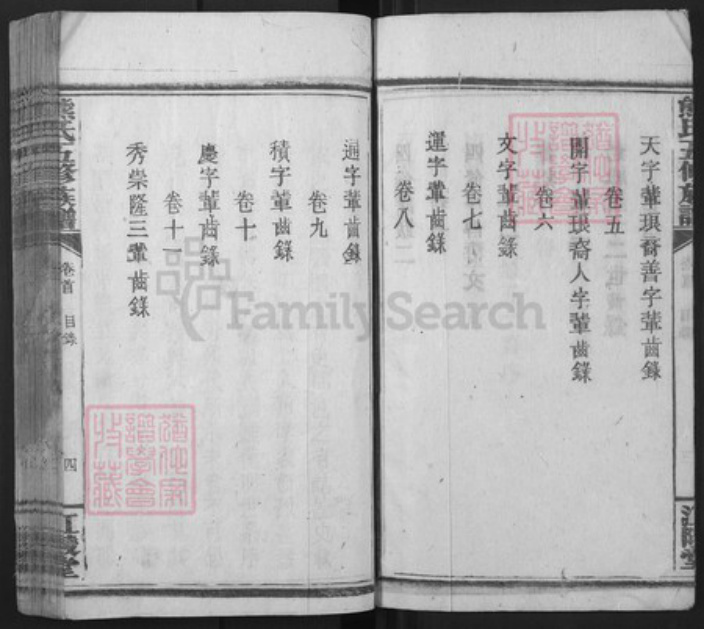 天字輩琅裔善字輩齒錄
卷五
開字輩琅裔人字輩齒錄
卷六
文字輩齒錄
卷七
運字輩齒錄
卷八
通字輩齒錄
卷九
積字輩齒錄
卷十
慶字輩齒錄
卷十一
秀榮隆三輩齒錄
熊氏五修族譜
卷首 目錄
四
江陵堂
FamilySearch